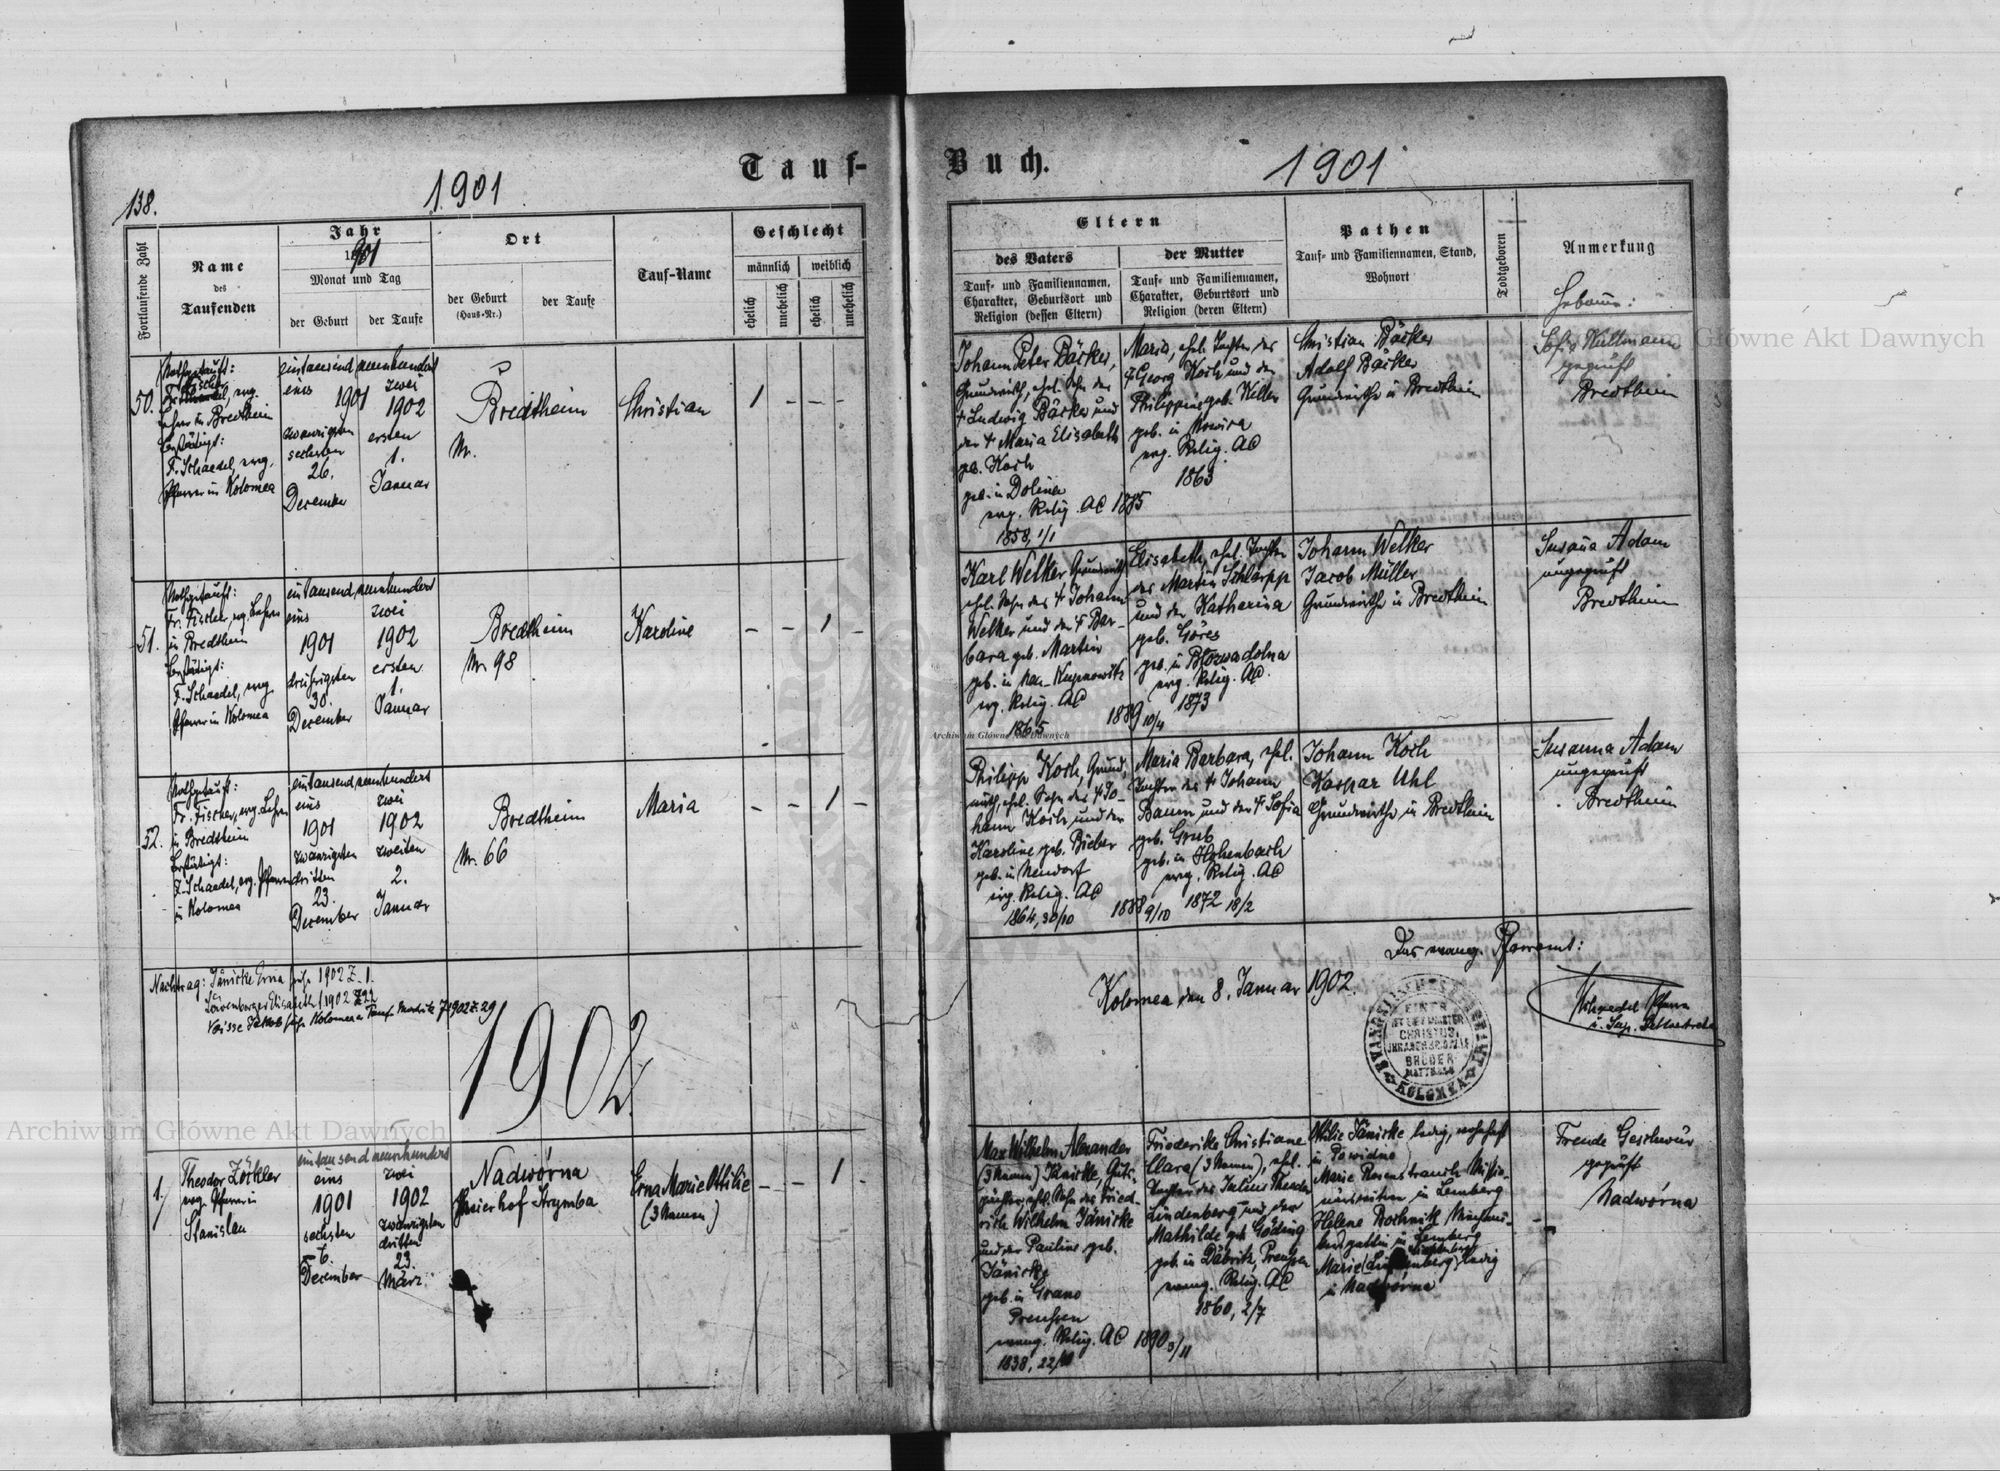 138.
1901
Tauf-
Fortlaufende Zahl
Name
des
Taufenden
Jahr
1901
Monat und Tag
der Geburt
der Taufe
Ort
der Geburt
(Haus-Nr.)
der Taufe
Tauf-Name
Geschlecht
männlich
weiblich
ehelich
unehelich
ehelich
unehelich
50.
Nothgetauft:
Fr. Fischer, evg.
Lehrer in Bredtheim
Bestätigt:
F. Schaedel, evg.
Pfarrer in Kolomea
eintausend neunhundert
eins
1901
zwanzigsten
sechsten
26.
December
zwei
1902
ersten
1.
Januar
Bredtheim
Nr.
Christian
1 - - -
51.
Nothgetauft:
Fr. Fischer, evg. Lehrer
in Bredtheim
Bestätigt:
F. Schaedel, evg.
Pfarrer in Kolomea
eintausend neunhundert
eins
1901
dreißigsten
30.
December
zwei
1902
ersten
1.
Januar
Bredtheim
Nr. 98
Karoline
- - 1 -
52.
Nothgetauft:
Fr. Fischer, evg. Lehrer
in Bredtheim
Bestätigt:
F. Schaedel, evg. Pfarrer
in Kolomea
eintausend neunhundert
eins
1901
zwanzigsten
dritten
23.
December
zwei
1902
zweiten
2.
Januar
Bredtheim
Nr. 66
Maria
- - 1 -
Nachtrag: Jänicke Erna siehe 1902 Z. 1.
Elisabeth 1902
Weisse Jakob siehe Kolomea Tauf Matrik 1902 Z. 29
1902.
1.
Theodor Zöckler
evg. Pfarrer in
Stanislau
eintausend neunhundert
eins
1901
sechsten
6.
December
zwei
1902
zwanzigsten
dritten
23.
März
Nadwórna
Meierhof Strymba
Erna Marie Ottilie
(3 Namen)
- - 1 -
Buch.
1901
Eltern
des Vaters
Tauf- und Familiennamen,
Charakter, Geburtsort und
Religion (dessen Eltern)
der Mutter
Tauf- und Familiennamen,
Charakter, Geburtsort und
Religion (deren Eltern)
Pathen
Tauf- und Familiennamen, Stand,
Wohnort
Todtgeboren
Anmerkung
Hebamme:
Johann Peter Bäcker,
Grundwirth, ehel. Sohn des
† Ludwig Bäcker und
der † Maria Elisabeth
geb. Koch
geb. in Dolina
evg. Relig. AC 1885
1858, 1/1
Maria, ehel. Tochter des
† Georg Koch und der
Philippine geb. Weller
geb. in
evg. Relig. AC
1863
Christian Bäcker
Adolf Bäcker
Grundwirthe in Bredtheim
Sofie Kullmann
geprüft
Bredtheim
Karl Welker Grundwirth
ehel. Sohn des † Johann
Welker und der † Bar-
bara geb. Martin
geb. in Neu-Kupnowitz
evg. Relig. AC
1865
1889 10/4
Elisabeth, ehel. Tochter
des Martin Schlarpp
und der Katharina
geb. Göres
geb. in
evg. Relig. AC.
1873
Johann Welker
Jacob Müller
Grundwirthe in Bredtheim
Susana Adam
ungeprüft
Bredtheim
Philipp Koch, Grund-
wirth, ehel. Sohn des † Jo-
hann Koch und der
Karoline geb. Bieber
geb. in Neudorf
evg. Relig. AC
1864, 30/10
1888 9/10
Maria Barbara, ehel.
Tochter des † Johann
Baum und der † Sofia
geb. Grub
geb. in Hohenbach
evg. Relig. AC
1872 18/2
Johann Koch
Kaspar Uhl
Grundwirthe in Bredtheim
Susanna Adam
ungeprüft
Bredtheim
Das evang. Pfarramt:
Kolomea den 8. Januar 1902.
EINER
IST EUER MEISTER
CHRISTUS,
IHR ABER SEID ALLE
BRÜDER
MATTH 23,8
KOLOMEA
Schaedel Pfarrer
Max Wilhelm Alexander
(3 Namen) Jänicke, Guts-
pächter, ehel. Sohn des Fried-
rich Wilhelm Jänicke
und der Pauline geb.
Jänicke
geb. in Grano
Preußen
evang. Relig. AC 1890 3/11
Friederike Christiane
Clara (3 Namen), ehel.
Tochter des Julius Theodor
Lindenberg und der
Mathilde geb. Göding
geb. in Däbritz, Preußen
evang. Relig. AC
1860, 2/7
Ottilie Jänicke ledig, wohnhaft
in Powidno
Marie Rosenstrauch Missio-
närswitwe, in Lemberg
Helene Bochnik
gattin in Lemberg
Marie ledig
in Nadwórna
Freude Geschwür
geprüft
Nadwórna
Archiwum Główne Akt Dawnych
Archiwum Główne Akt Dawnych
Archiwum Główne Akt Dawnych